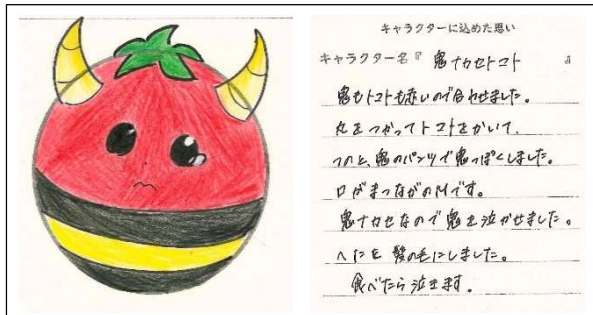 キャラクターに込めた思い
キャラクター名『 鬼ナカセトマト 』
鬼もトマトも赤いので合わせました。
丸をつかってトマトをかいて、
つのと、鬼のパンツで鬼っぽくしました。
口がまつながのMです。
鬼ナカセなので鬼を泣かせました。
へたを髪の毛にしました。
食べたら泣きます。